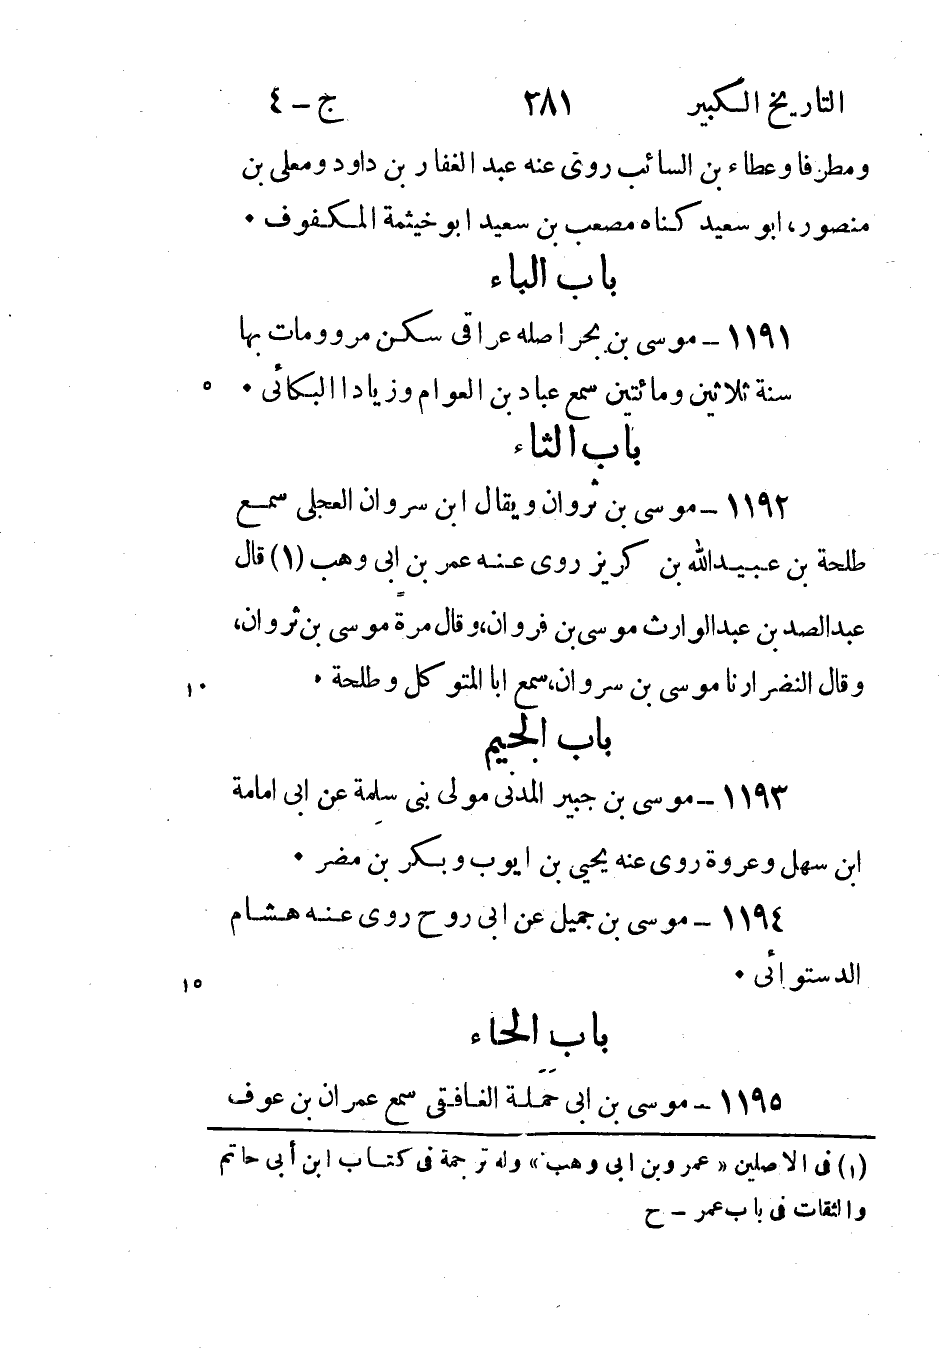 التاريخ الكبير ٢٨١ ج - ٤
ومطرفا وعطاء بن السائب روى عنه عبد الغفار بن داود ومعلى بن
منصور، ابو سعيد كناه مصعب بن سعيد ابو خيثمة المكفوف ٠
باب الباء
١١٩١ - موسى بن بحر اصله عراقى سكن مرو ومات بها
سنة ثلاثين ومائتين سمع عباد بن العوام وزيادا البكائى ٠ ٥
باب الثاء
١١٩٢ - موسى بن ثروان ويقال ابن سروان العجلى سمع
طلحة بن عبيد الله بن كريز روى عنه عمر بن ابى وهب (١) قال
عبد الصمد بن عبد الوارث موسى بن فروان، وقال مرة موسى بن ثروان،
وقال النضر ارنا موسى بن سروان، سمع ابا المتوكل وطلحة ٠ ١٠
باب الجيم
١١٩٣ - موسى بن جبير المدنى مولى بنى سلمة عن ابى امامة
ابن سهل وعروة روى عنه يحيى بن ايوب وبكر بن مضر ٠
١١٩٤ - موسى بن جميل عن ابى روح روى عنه هشام
الدستوائى ٠ ١٥
باب الحاء
١١٩٥ - موسى بن ابى حملة الغافقى سمع عمران بن عوف
(١) فى الاصلين « عمرو بن ابى وهب » وله ترجمة فى كتاب ابن أبى حاتم
والثقات فى باب عمر - ح